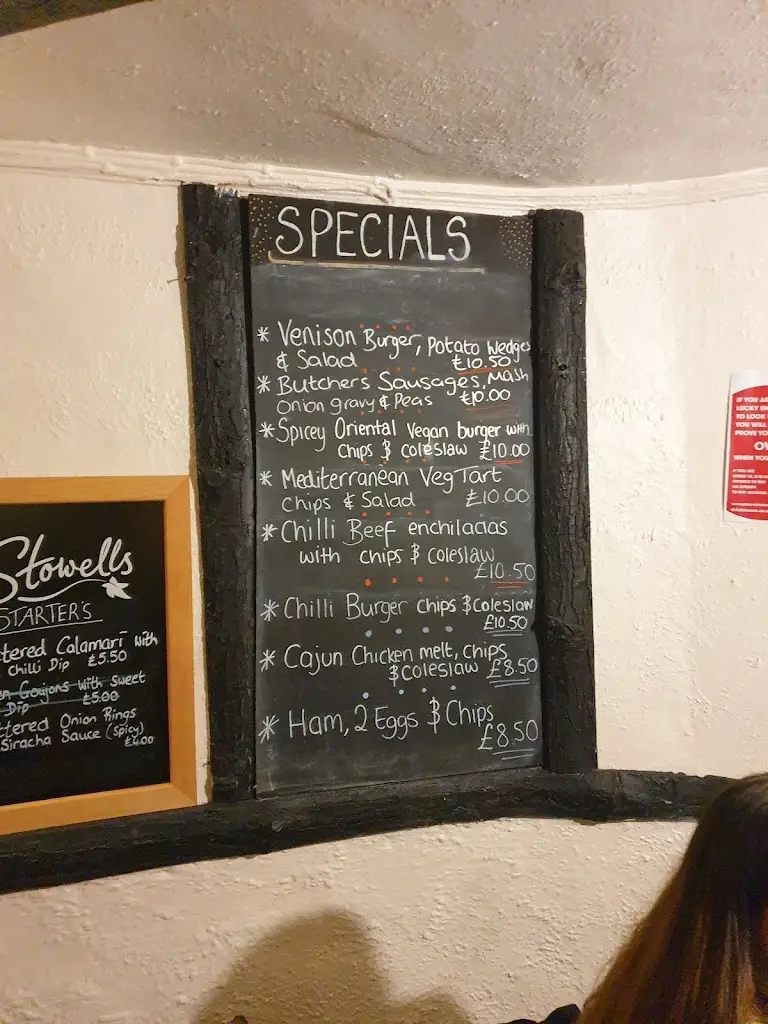 SPECIALS
* Venison Burger, Potato Wedges
& Salad £10.50
* Butchers Sausages, Mash
Onion gravy & Peas £10.00
* Spicey Oriental Vegan burger with
chips & coleslaw £10.00
* Mediterranean Veg Tart
chips & Salad £10.00
* Chilli Beef enchiladas
with chips & coleslaw
£10.50
* Chilli Burger chips & Coleslaw
£10.50
* Cajun Chicken melt, chips
& Coleslaw £8.50
* Ham, 2 Eggs & Chips
£8.50
Stowells
STARTER'S
tered Calamari with
Chilli Dip £5.50
en Goujons with sweet
Dip £5.00
ttered Onion Rings
Siracha Sauce (spicy)
£4.00
IF YOU A
LUCKY EN
TO LOOK
YOU WILL
PROVE YO
WHEN YOU